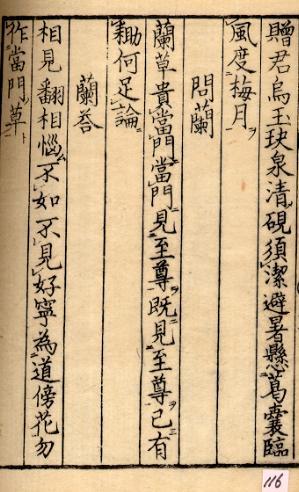 贈君烏玉玦泉清硯須潔避暑懸葛囊臨
風度梅月
問蘭
蘭草貴當門當門見至尊既見至尊已有
耡何足論
蘭荅
相見翻相惱不如不見好寧為道傍花勿
作當門草
116